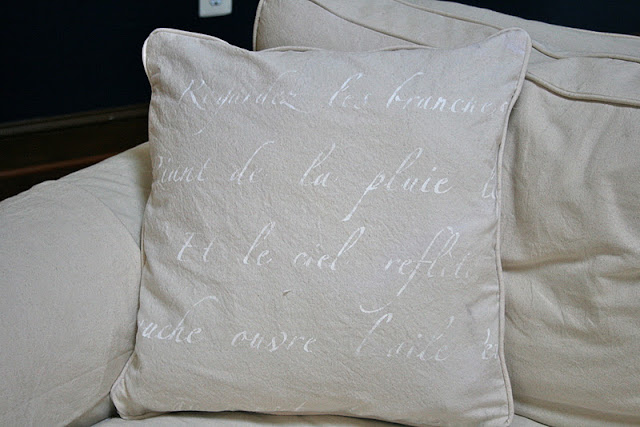 Regardez les branches
Riant de la pluie
Et le ciel reflète
ouche ouvre l'aile